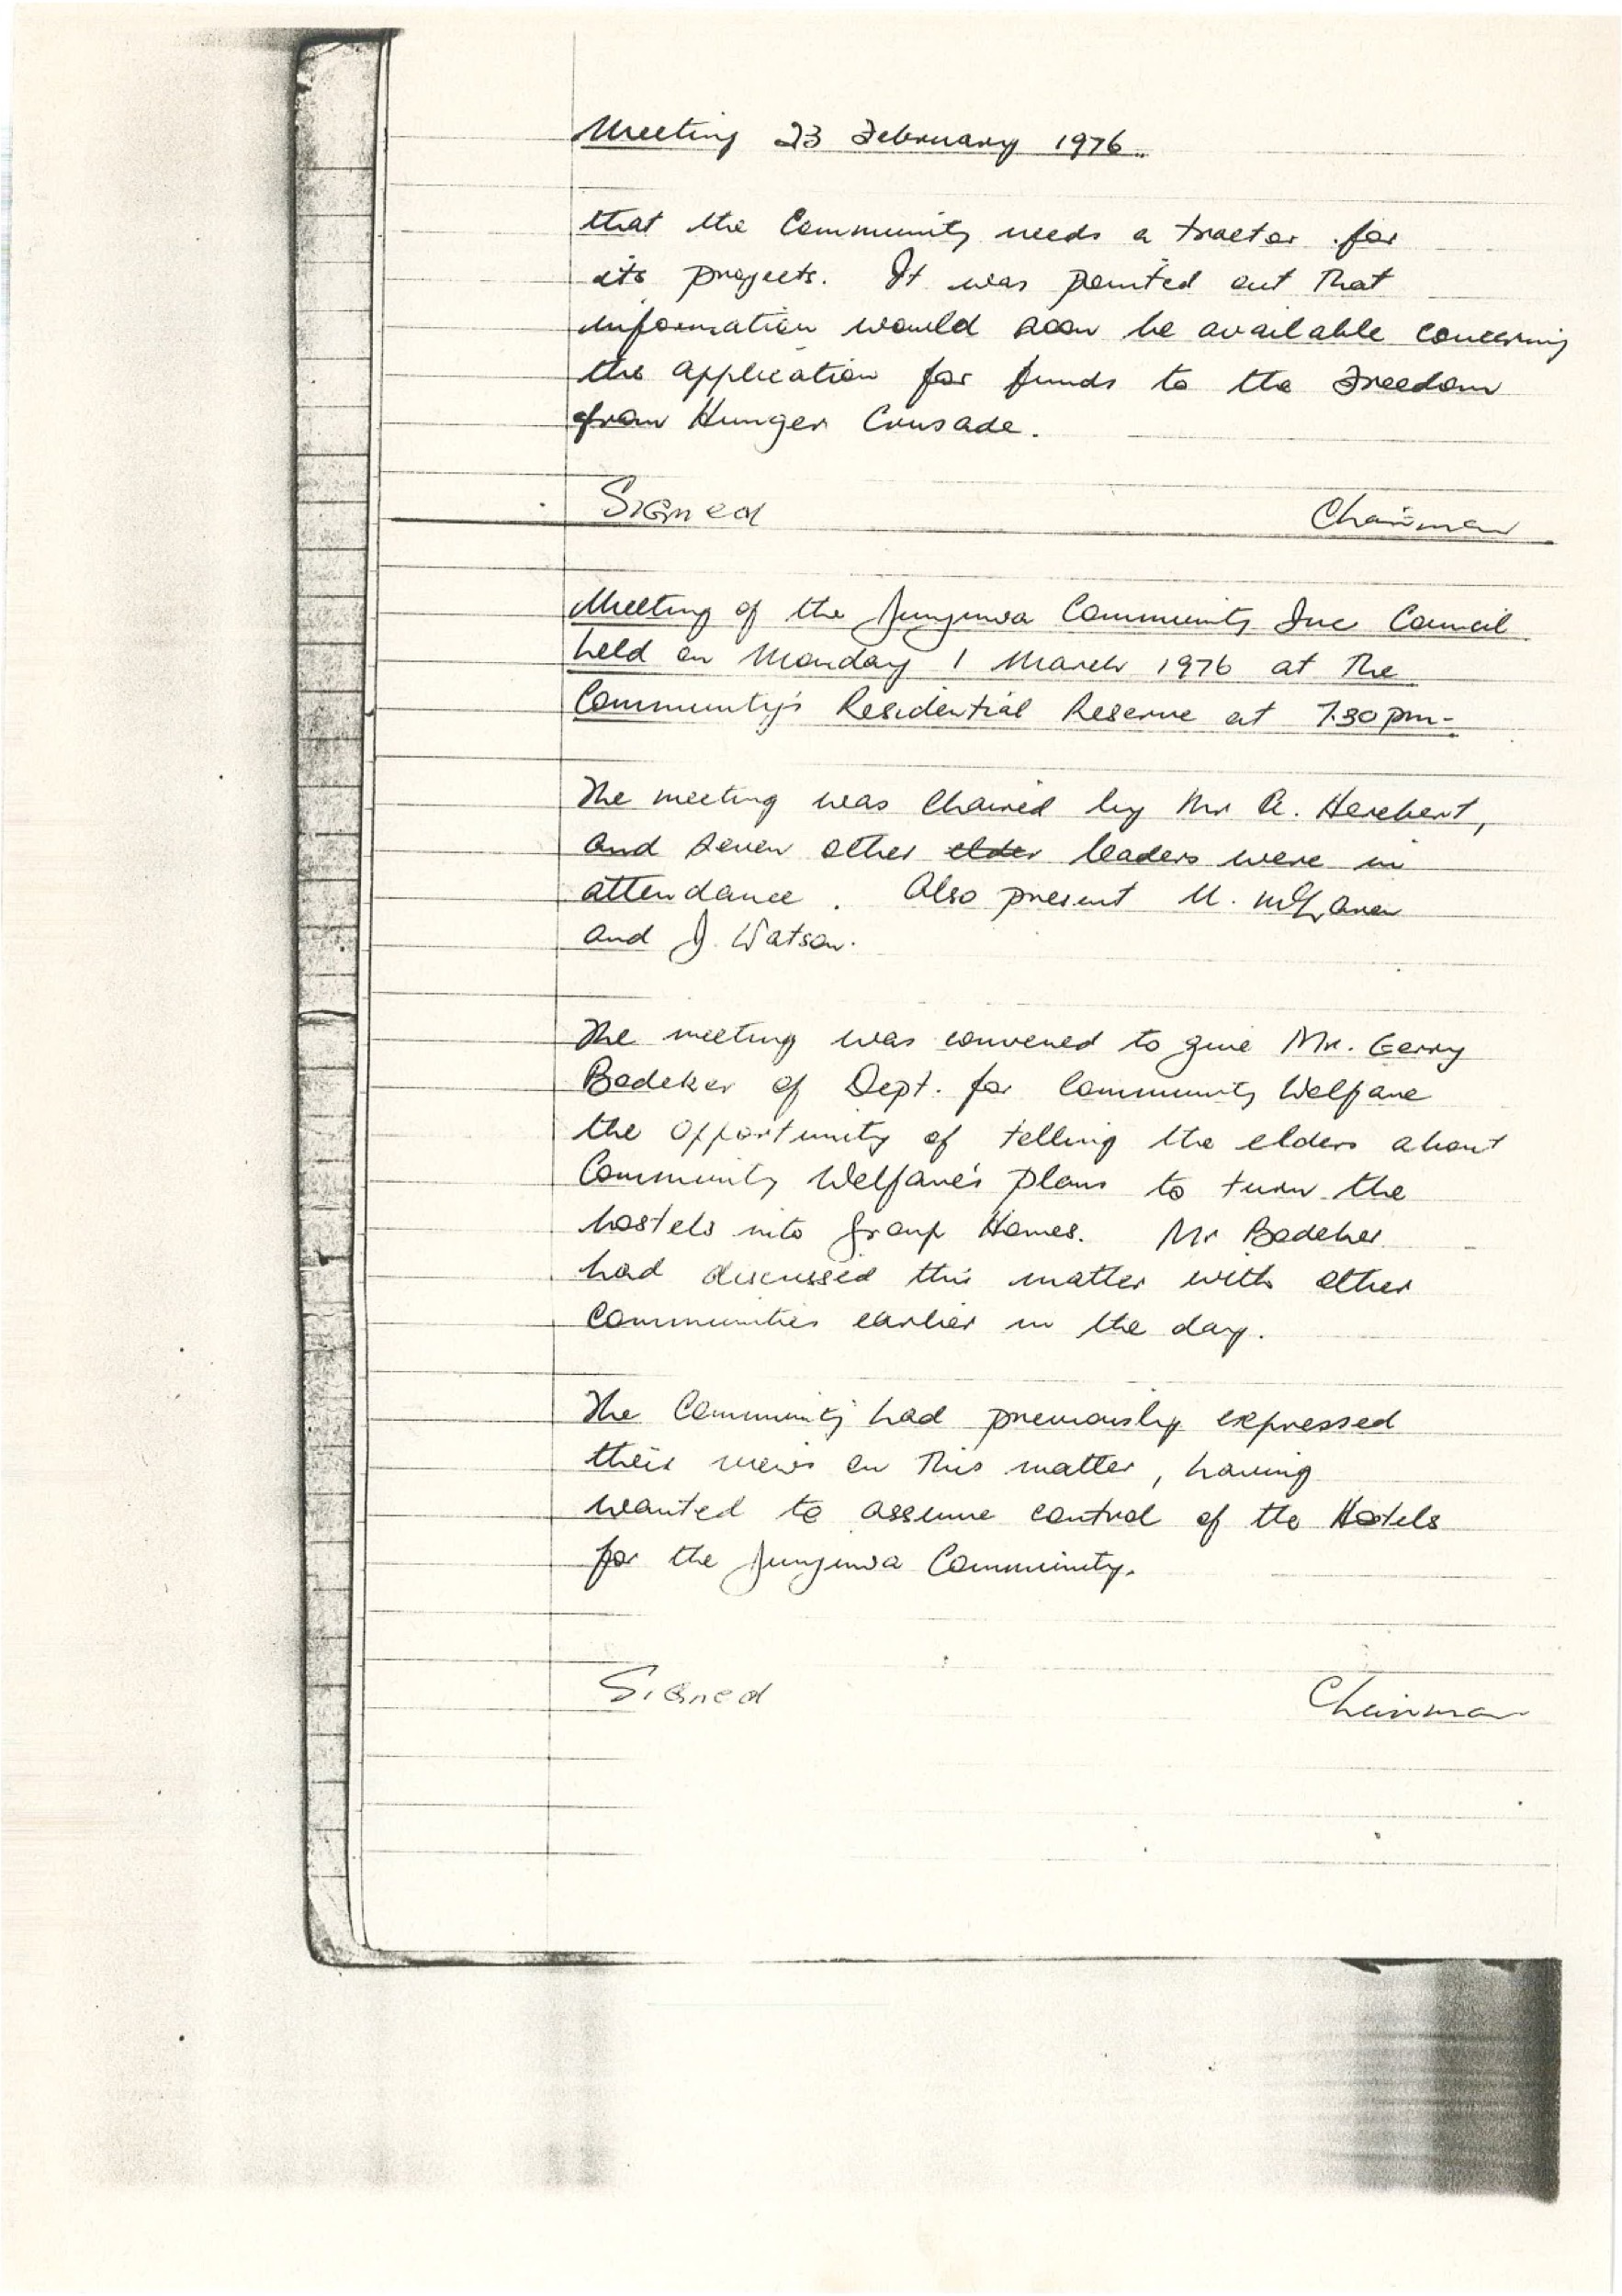 Meeting 23 February 1976.
that the Community needs a tractor for
its projects. It was pointed out that
information would soon be available concerning
the application for funds to the Freedom
from Hunger Crusade.
Signed Chairman
Meeting of the Junjuwa Community Inc Council
held on Monday 1 March 1976 at the
Community's Residential Reserve at 7.30pm-
The meeting was chaired by Mr A. Herebert,
and seven other elder leaders were in
attendance. Also present M.
and J. Watson.
The meeting was convened to give Mr. Gerry
Bodeker of Dept. for Community Welfare
the opportunity of telling the elders about
Community Welfare's plans to turn the
hostels into Group Homes. Mr Bodeker
had discussed this matter with other
Communities earlier in the day.
The Community had previously expressed
their views on this matter, having
wanted to assume control of the Hostels
for the Junjuwa Community.
Signed Chairman